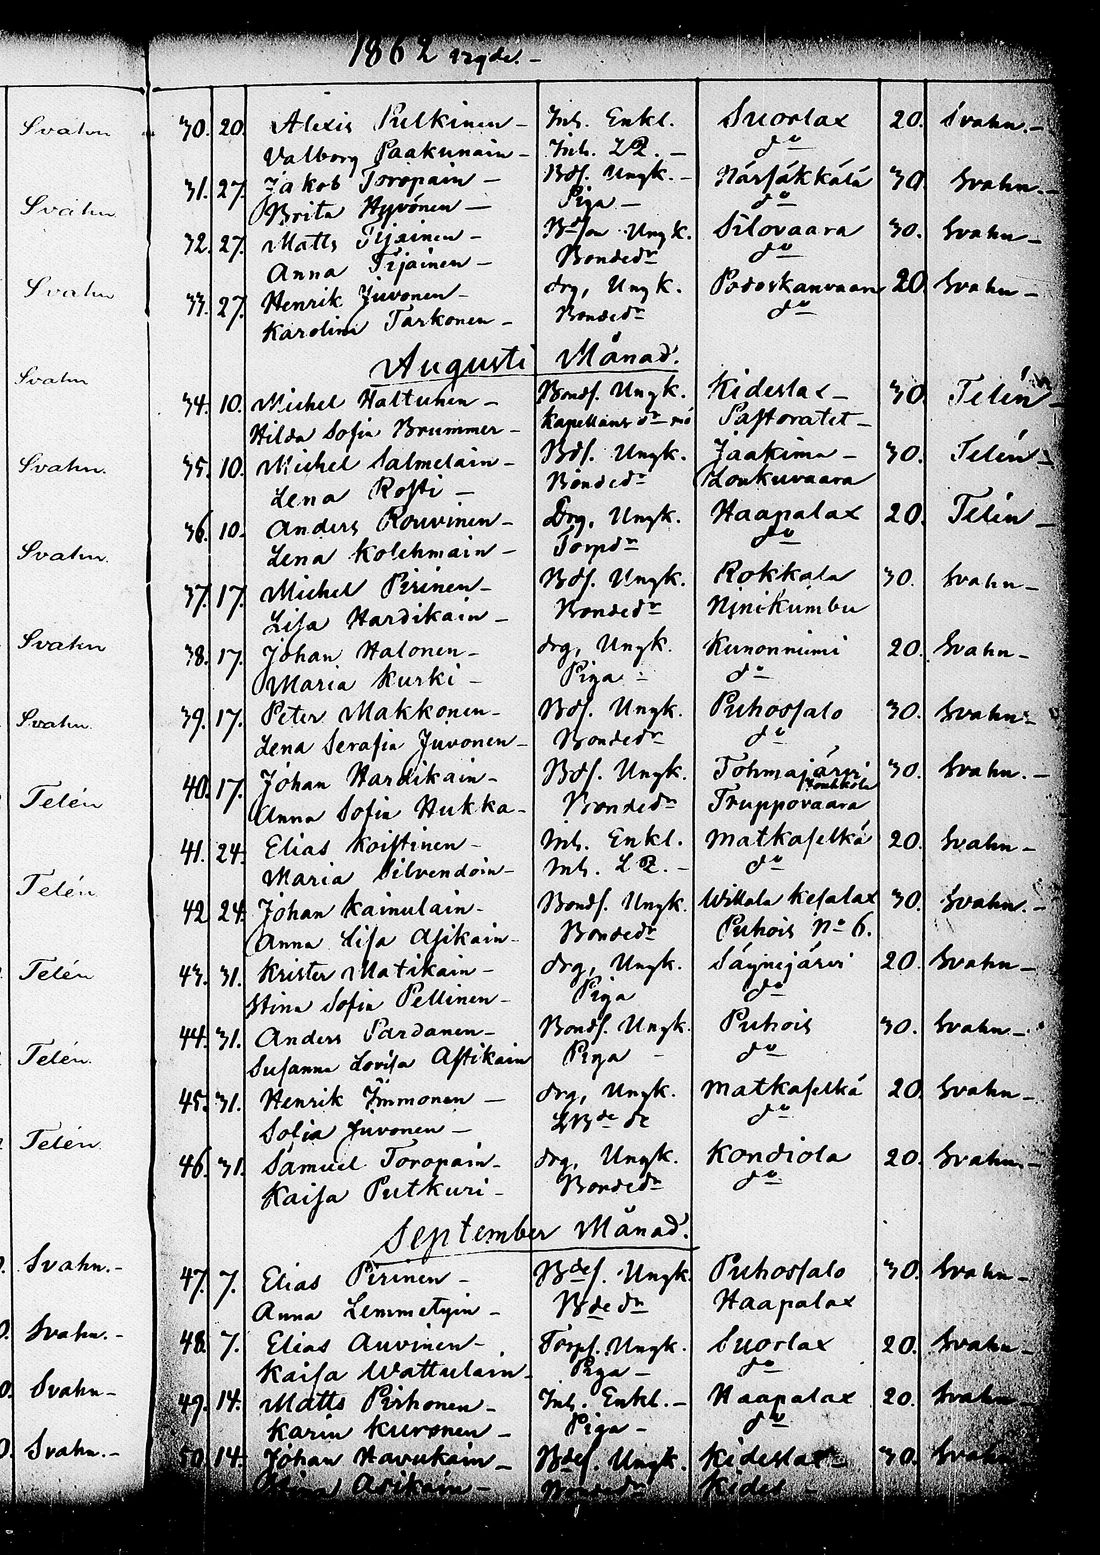 1862 vigde. -
Svahn
Svahn
Svahn
Svahn
Svahn.
Svahn.
Svahn
Svahn
Telén
Telén
Telén
Telén.
Telén.
Svahn.-
Svahn.-
Svahn-
Svahn.-
30. 20. Alexis Pulkinen- Inh. Enkl. Suorlax 20. Svahn.-
Valborg Paakunain- Inh. - do
31. 27. Jakob Toropain- Bds. Ungk.- Närsäkkälä 30. Svahn.-
Brita Hyvönen- Piga- do
32. 27. Matts Tijainen- Bdson Ungk. Silovaara 30. Svahn-
Anna Tijainen- Bondedr do
33. 27. Henrik Juvonen- drg, Ungk. Podoskanvaara 20. Svahn-
Karolina Tarkonen- Bondedr do
Augusti Månad.
34. 10. Michel Haltunen- Bonds. Ungk. Kideslax- 30. Telén-
Hilda Sofia Brummer- Kapellans dr mö Pastoratet-
35. 10. Michel Salmelain- Bds. Ungk. Jaakima- 30. Telén-
Lena Rosti- Bondedr Loukuvaara
36. 10. Anders Rouvinen- Drg, Ungk. Haapalax 20. Telén-
Lena Kolehmain- Torpdr do
37. 17. Michel Pirinen- Bds. Ungk. Rokkala 30. Svahn-
Lisa Hardikain- Bondedr Ninikumbu
38. 17. Johan Halonen- drg, Ungk. Kunonniemi 20. Svahn-
Maria Kurki- Piga- do
39. 17. Peter Makkonen- Bds. Ungk. Puhossalo 30. Svahn-
Lena Serafia Juvonen- Bondedr do
40. 17. Johan Hardikain- Bds. Ungk. Tohmajärvi 30. Svahn.-
Anna Sofia Hukka- Bondedr Truppovaara
41. 24. Elias Koistinen- Inh. Enkl. Matkaselkä 20. Svahn-
Maria Silvendoin- Inh. - do
42. 24. Johan Kainulain- Bonds. Ungk. Kesalax 30. Svahn.-
Anna Lisa Asikain- Bondedr Puhois No 6.
43. 31. Krister Matikain- drg, Ungk. Säynejärvi 20. Svahn-
Stina Sofia Pellinen- Piga do
44. 31. Anders Pardanen- Bonds. Ungk. Puhois 30. Svahn-
Susanna Lovisa Astikain Piga- do
45. 31. Henrik Immonen- drg, Ungk. Matkaselkä 20. Svahn-
Sofia Juvonen- do
46. 31. Samuel Toropain- drg, Ungk. Kondiola 20. Svahn.-
Kaisa Putkuri- Bondedr do
September Månad.
47. 7. Elias Pirinen- Bdes. Ungk. Puhossalo 30. Svahn-
Anna Lemmetyin- Bdedr Haapalax
48. 7. Elias Auvinen- Torps. Ungk. Suorlax 20. Svahn-
Kaisa Wattulain- Piga- do
49. 14. Matts Pirhonen- Inh. Enkl.- Haapalax 20. Svahn-
Karin Kuronen- Piga- do
50. 14. Johan Havukain- Bdes. Ungk. Kideslax- 30. Svahn
Stina Asikain- Bondedr Kides-